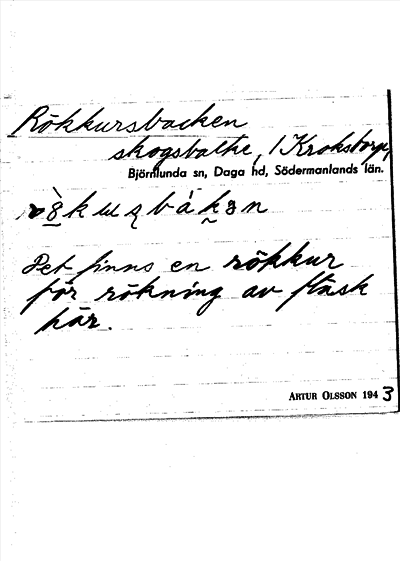 Rökkursbacken
skogsbacke, /Krokstorp/
Björnlunda sn, Daga hd, Södermanlands län.
Det finns en rökkur
för rökning av fläsk
här.
ARTUR OLSSON 1943